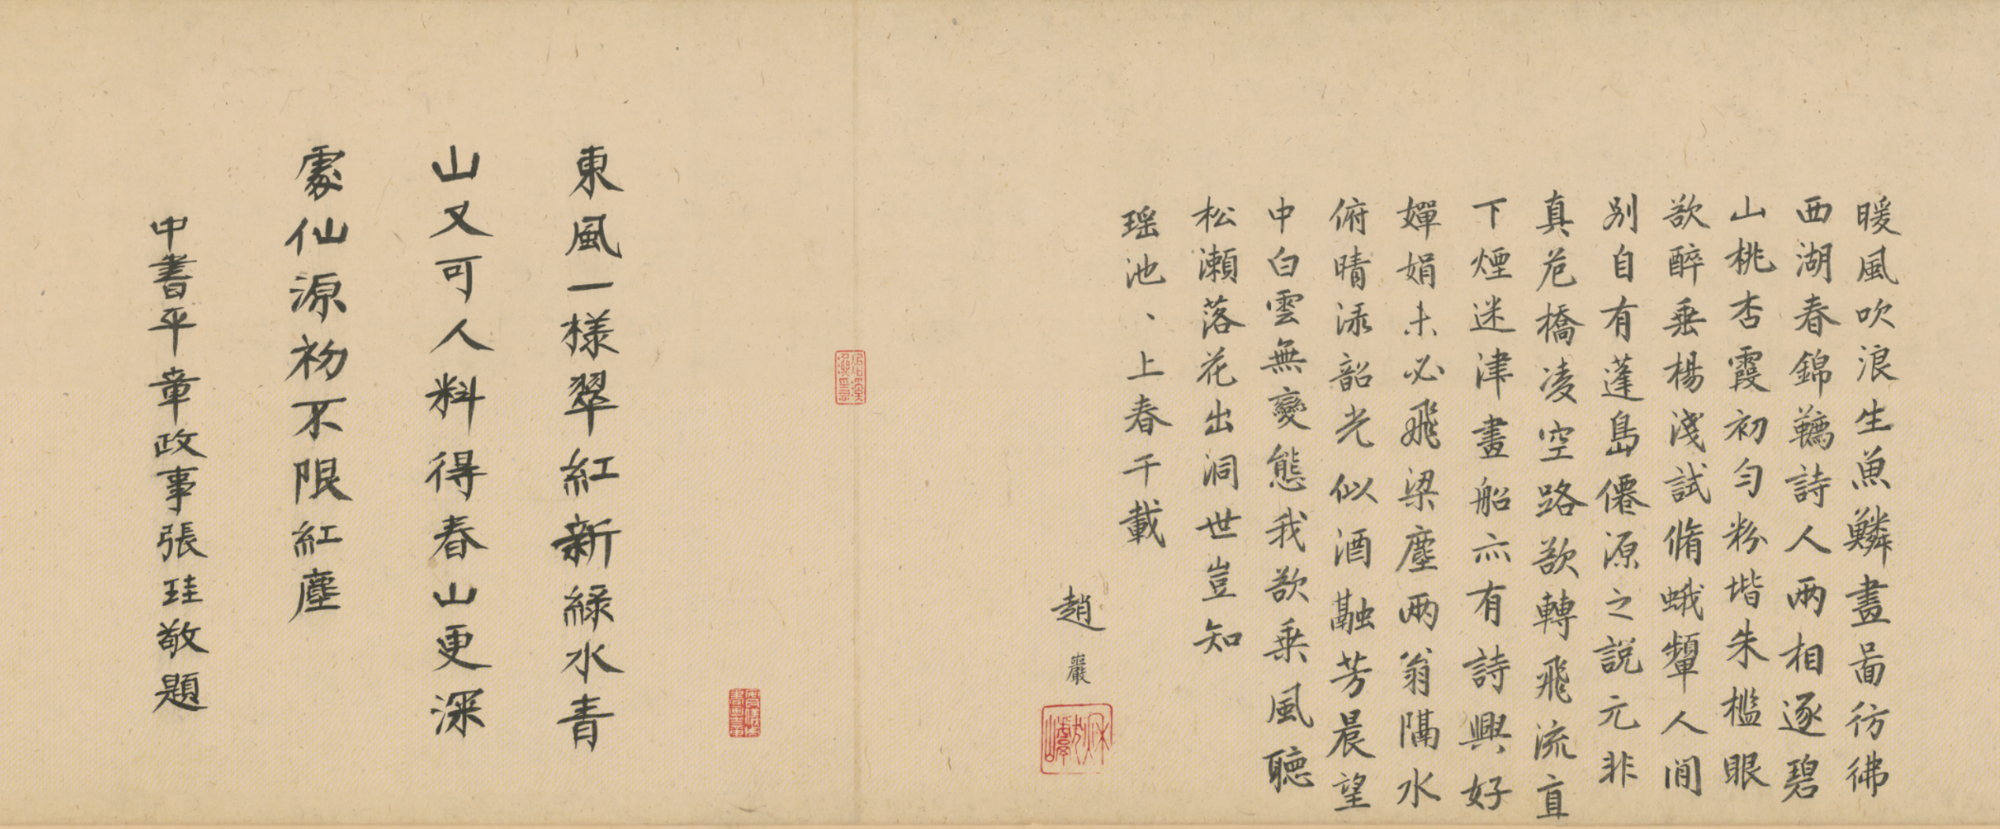 暖風吹浪生魚鱗畫啚彷彿
西湖春錦韉詩人兩相逐碧
山桃杏霞初勻粉堦朱檻眼
欲醉垂楊淺試脩蛾顰人間
別自有蓬島僊源之說元非
真危橋凌空路欲轉飛流直
下煙迷津畫船亦有詩興好
嬋娟未必飛梁塵兩翁隔水
俯晴渌韶光似酒融芳晨望
中白雲無變態我欲乗風聽
松瀬落花出洞世豈知
瑶池、上春千載
趙巖
東風一樣翠紅新綠水青
山又可人料得春山更深
處仙源初不限紅塵
中書平章政事張珪敬題